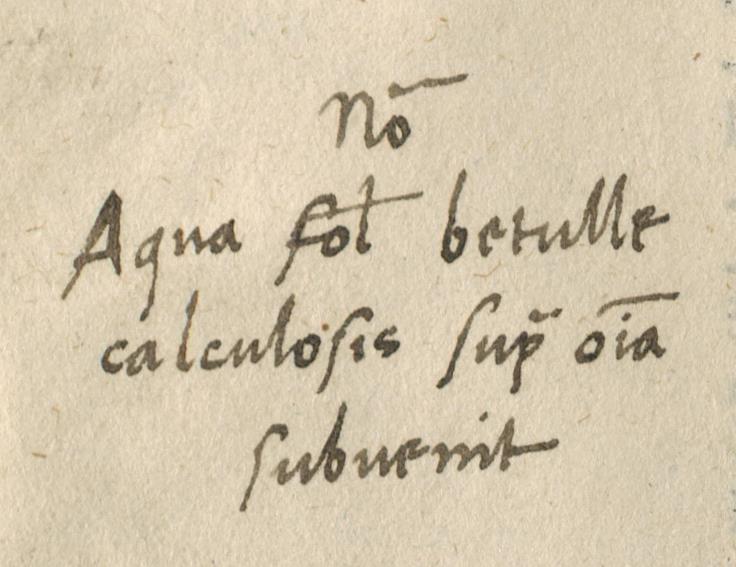 Nō
Aqua fol̄ betulle
calculosis sup̄ oīa
subuenit